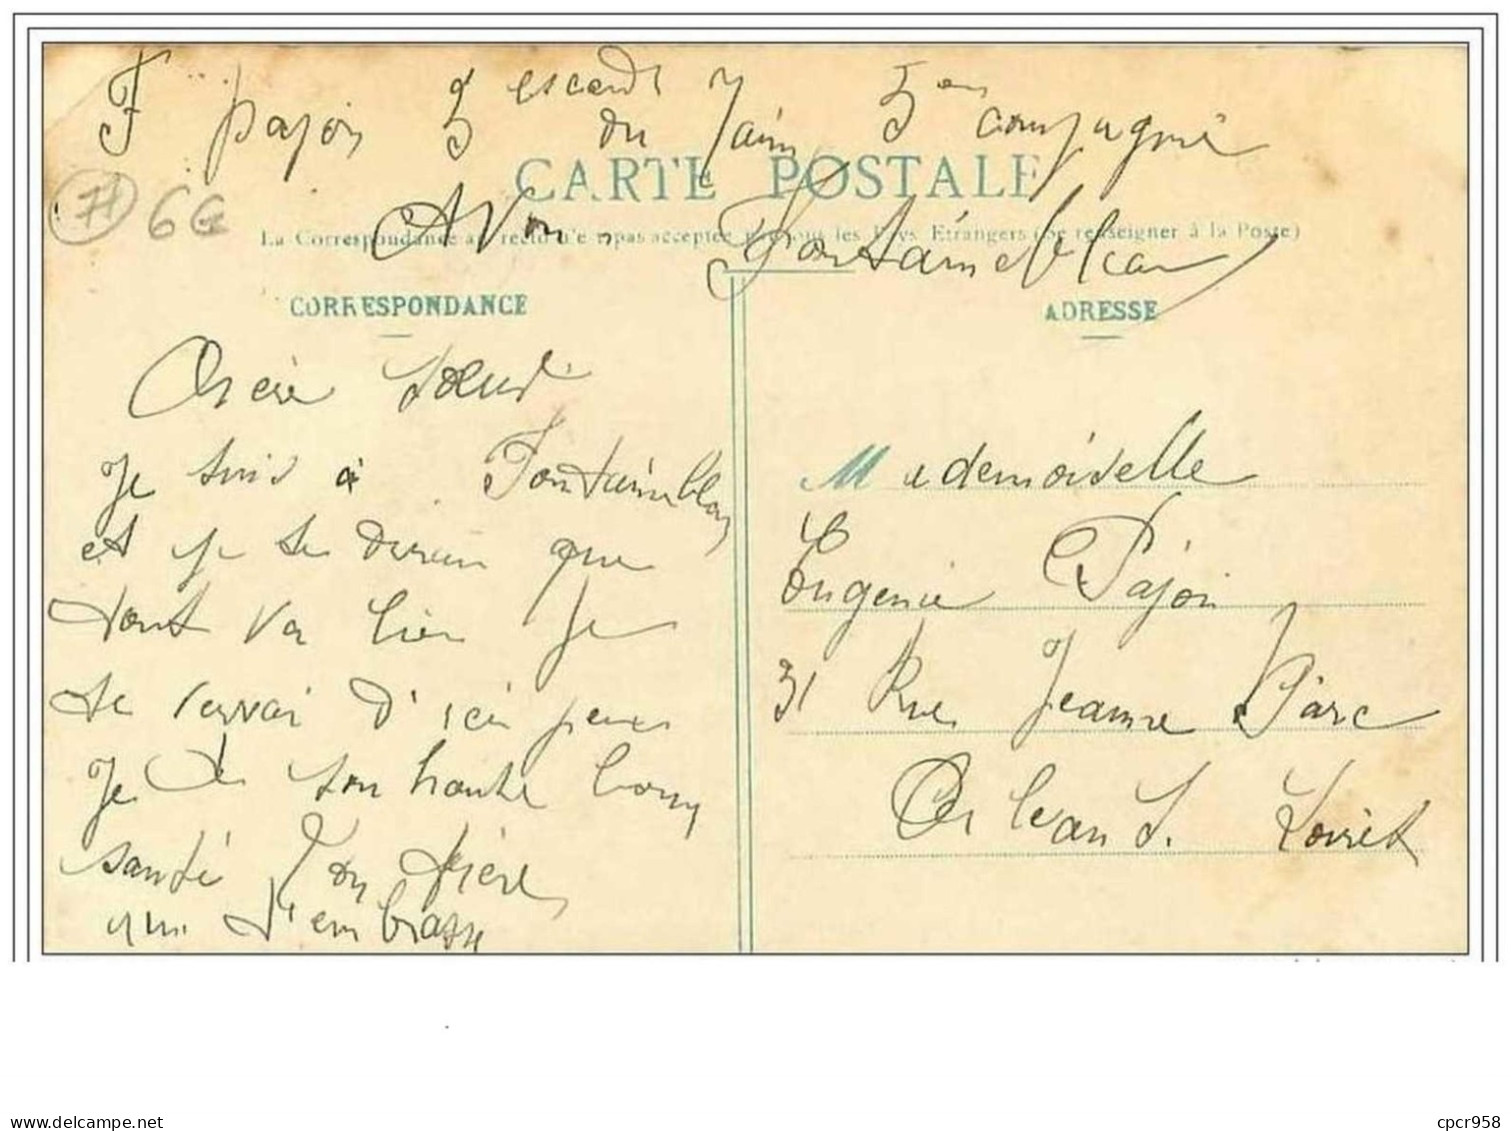 F pajon 5 escard 5em compagnie
du Train
CARTE POSTALE
Avon Fontainebleau
La Correspondance au recto n'est pas acceptée par tous les Pays Étrangers (Se renseigner à la Poste)
# 6G
CORRESPONDANCE
Chère Sœur
Je suis a Fontainebleau
et je te dirai que
tout va bien Je
te d'ici peux
Je te bonne
santé Ton frère
qui t'embrasse
ADRESSE
Mademoiselle
Eugenie Pajon
31 Rue Jeanne D'arc
Orleans. Loiret
cpcr958